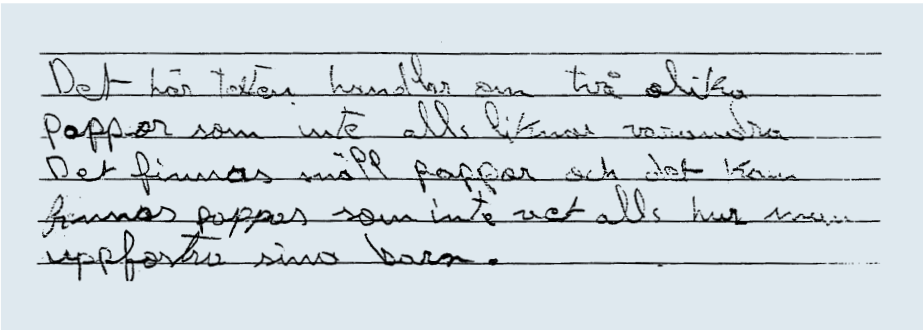 Det här texten handlar om två olika
pappor som inte alls liknar varandra
Det finnas snäll pappor och det kan
finnas pappor som inte vet alls hur man
uppfostra sina barn.